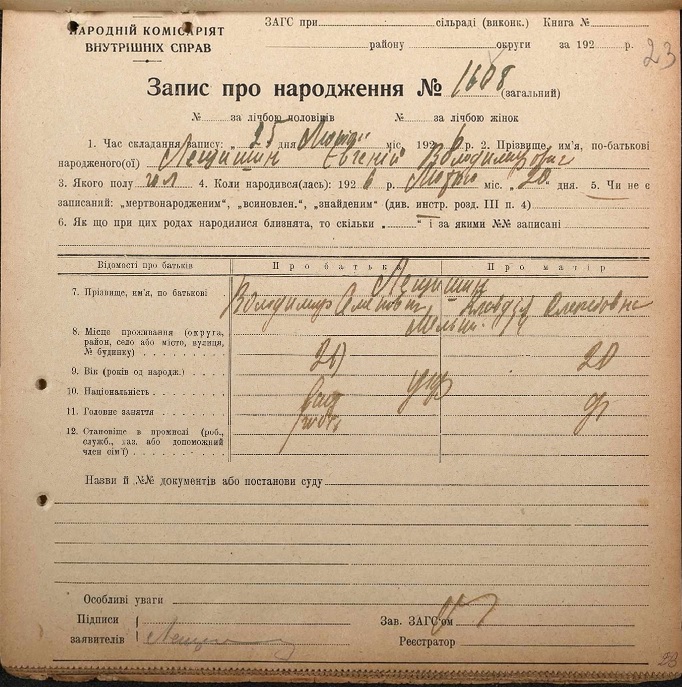 НАРОДНІЙ КОМІСАРІЯТ
ВНУТРІШНІХ СПРАВ
ЗАГС при сільраді (виконк.) Книга №
району округи за 192 р.
23
Запис про народження № 1608 (загальний)
№ за лічбою чоловіків № за лічбою жінок
1. Час складання запису: „ 25 дня Лютого міс. 192 6 р. 2. Прізвище, ім'я, по-батькові
народженого(ої) Лещишин Евгеній Володимирович
3. Якого полу чол 4. Коли народився(лась): 192 6 р. Лютого міс. „ 20 " дня. 5. Чи не є
записаний: „мертвонародженим", „всиновлен.", „знайденим" (див. инстр. розд. III п. 4)
6. Як що при цих родах народилися близнята, то скільки „ " і за якими №№ записані
Відомості про батьків Про батька Про матір
Лещишин
7. Прізвище, ім'я, по батькові Володимир
8. Місце проживання (округа,
район, село або місто, вулиця,
№ будинку)
9. Вік (років од народж.) 20
10. Національність укр
11. Головне заняття
12. Становище в промислі (роб.,
служб., хаз. або допоможний
член сім'ї)
Назви й №№ документів або постанови суду
Особливі уваги
Підписи
заявителів
Зав. ЗАГС'ом
Реєстратор
23